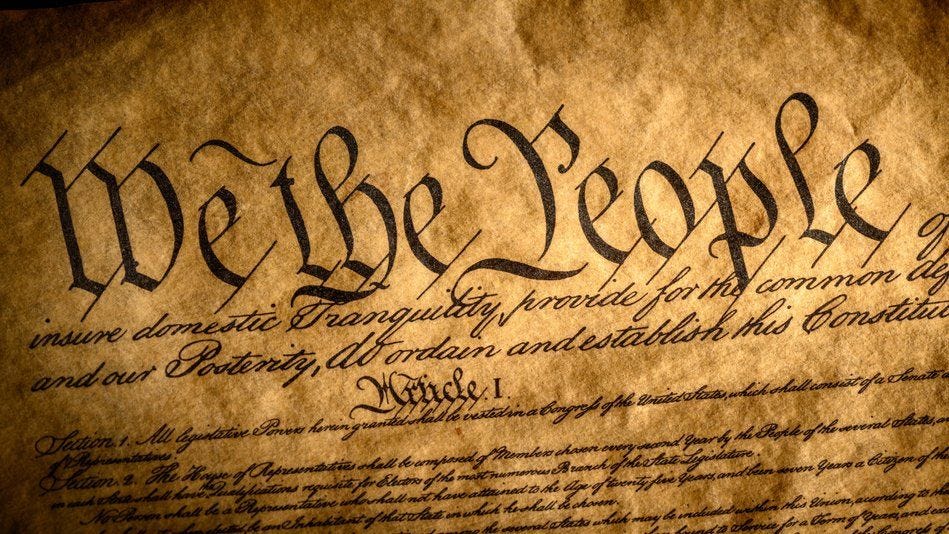 We the People of
insure domestic Tranquility, provide for the common de
and our Posterity, do ordain and establish this Constitu
Article. I.
Section. 1. All legislative Powers herein granted shall be vested in a Congress of the United States, which shall consist of a Senate
of Representatives.
Section. 2. The House of Representatives shall be composed of Members chosen every second Year by the People of the several States,
in each State shall have Qualifications requisite for Electors of the most numerous Branch of the State Legislature.
No Person shall be a Representative who shall not have attained to the Age of twenty five Years, and been seven Years a Citizen of the
an Inhabitant of that State in which he shall be chosen.
among the several States which may be included within this Union, according to
bound to Service for a Term of Years, and